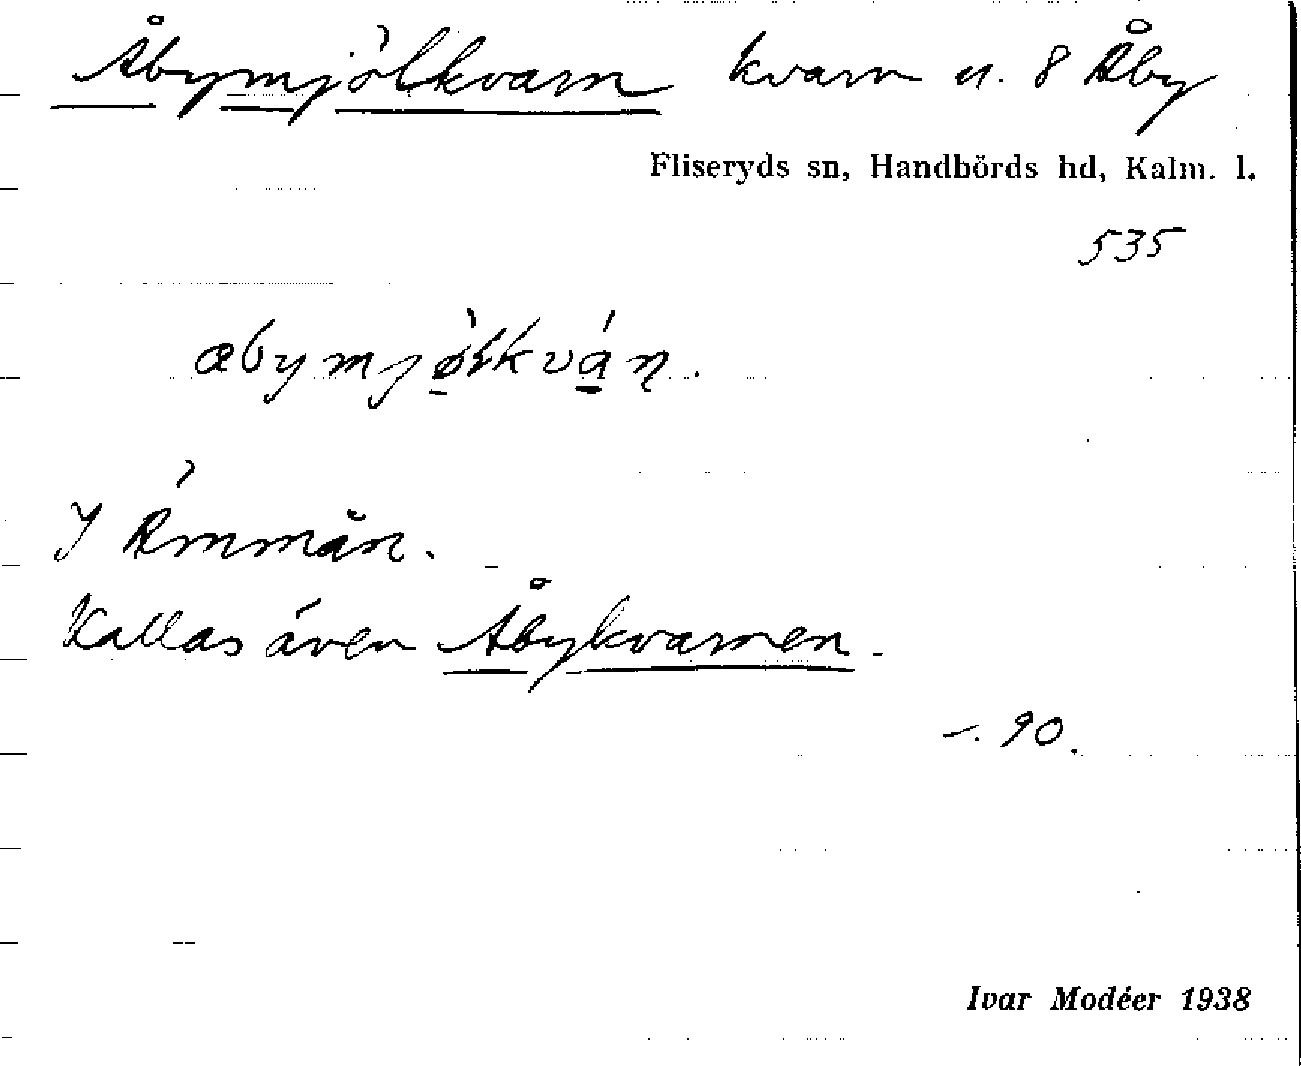 Åbymjölkvarn kvarn u. 8 Åby
Fliseryds sn, Handbörds hd, Kalm. l.
535
I Ämmån.
Kallas även Åbykvarnen.
–. 90.
Ivar Modéer 1938